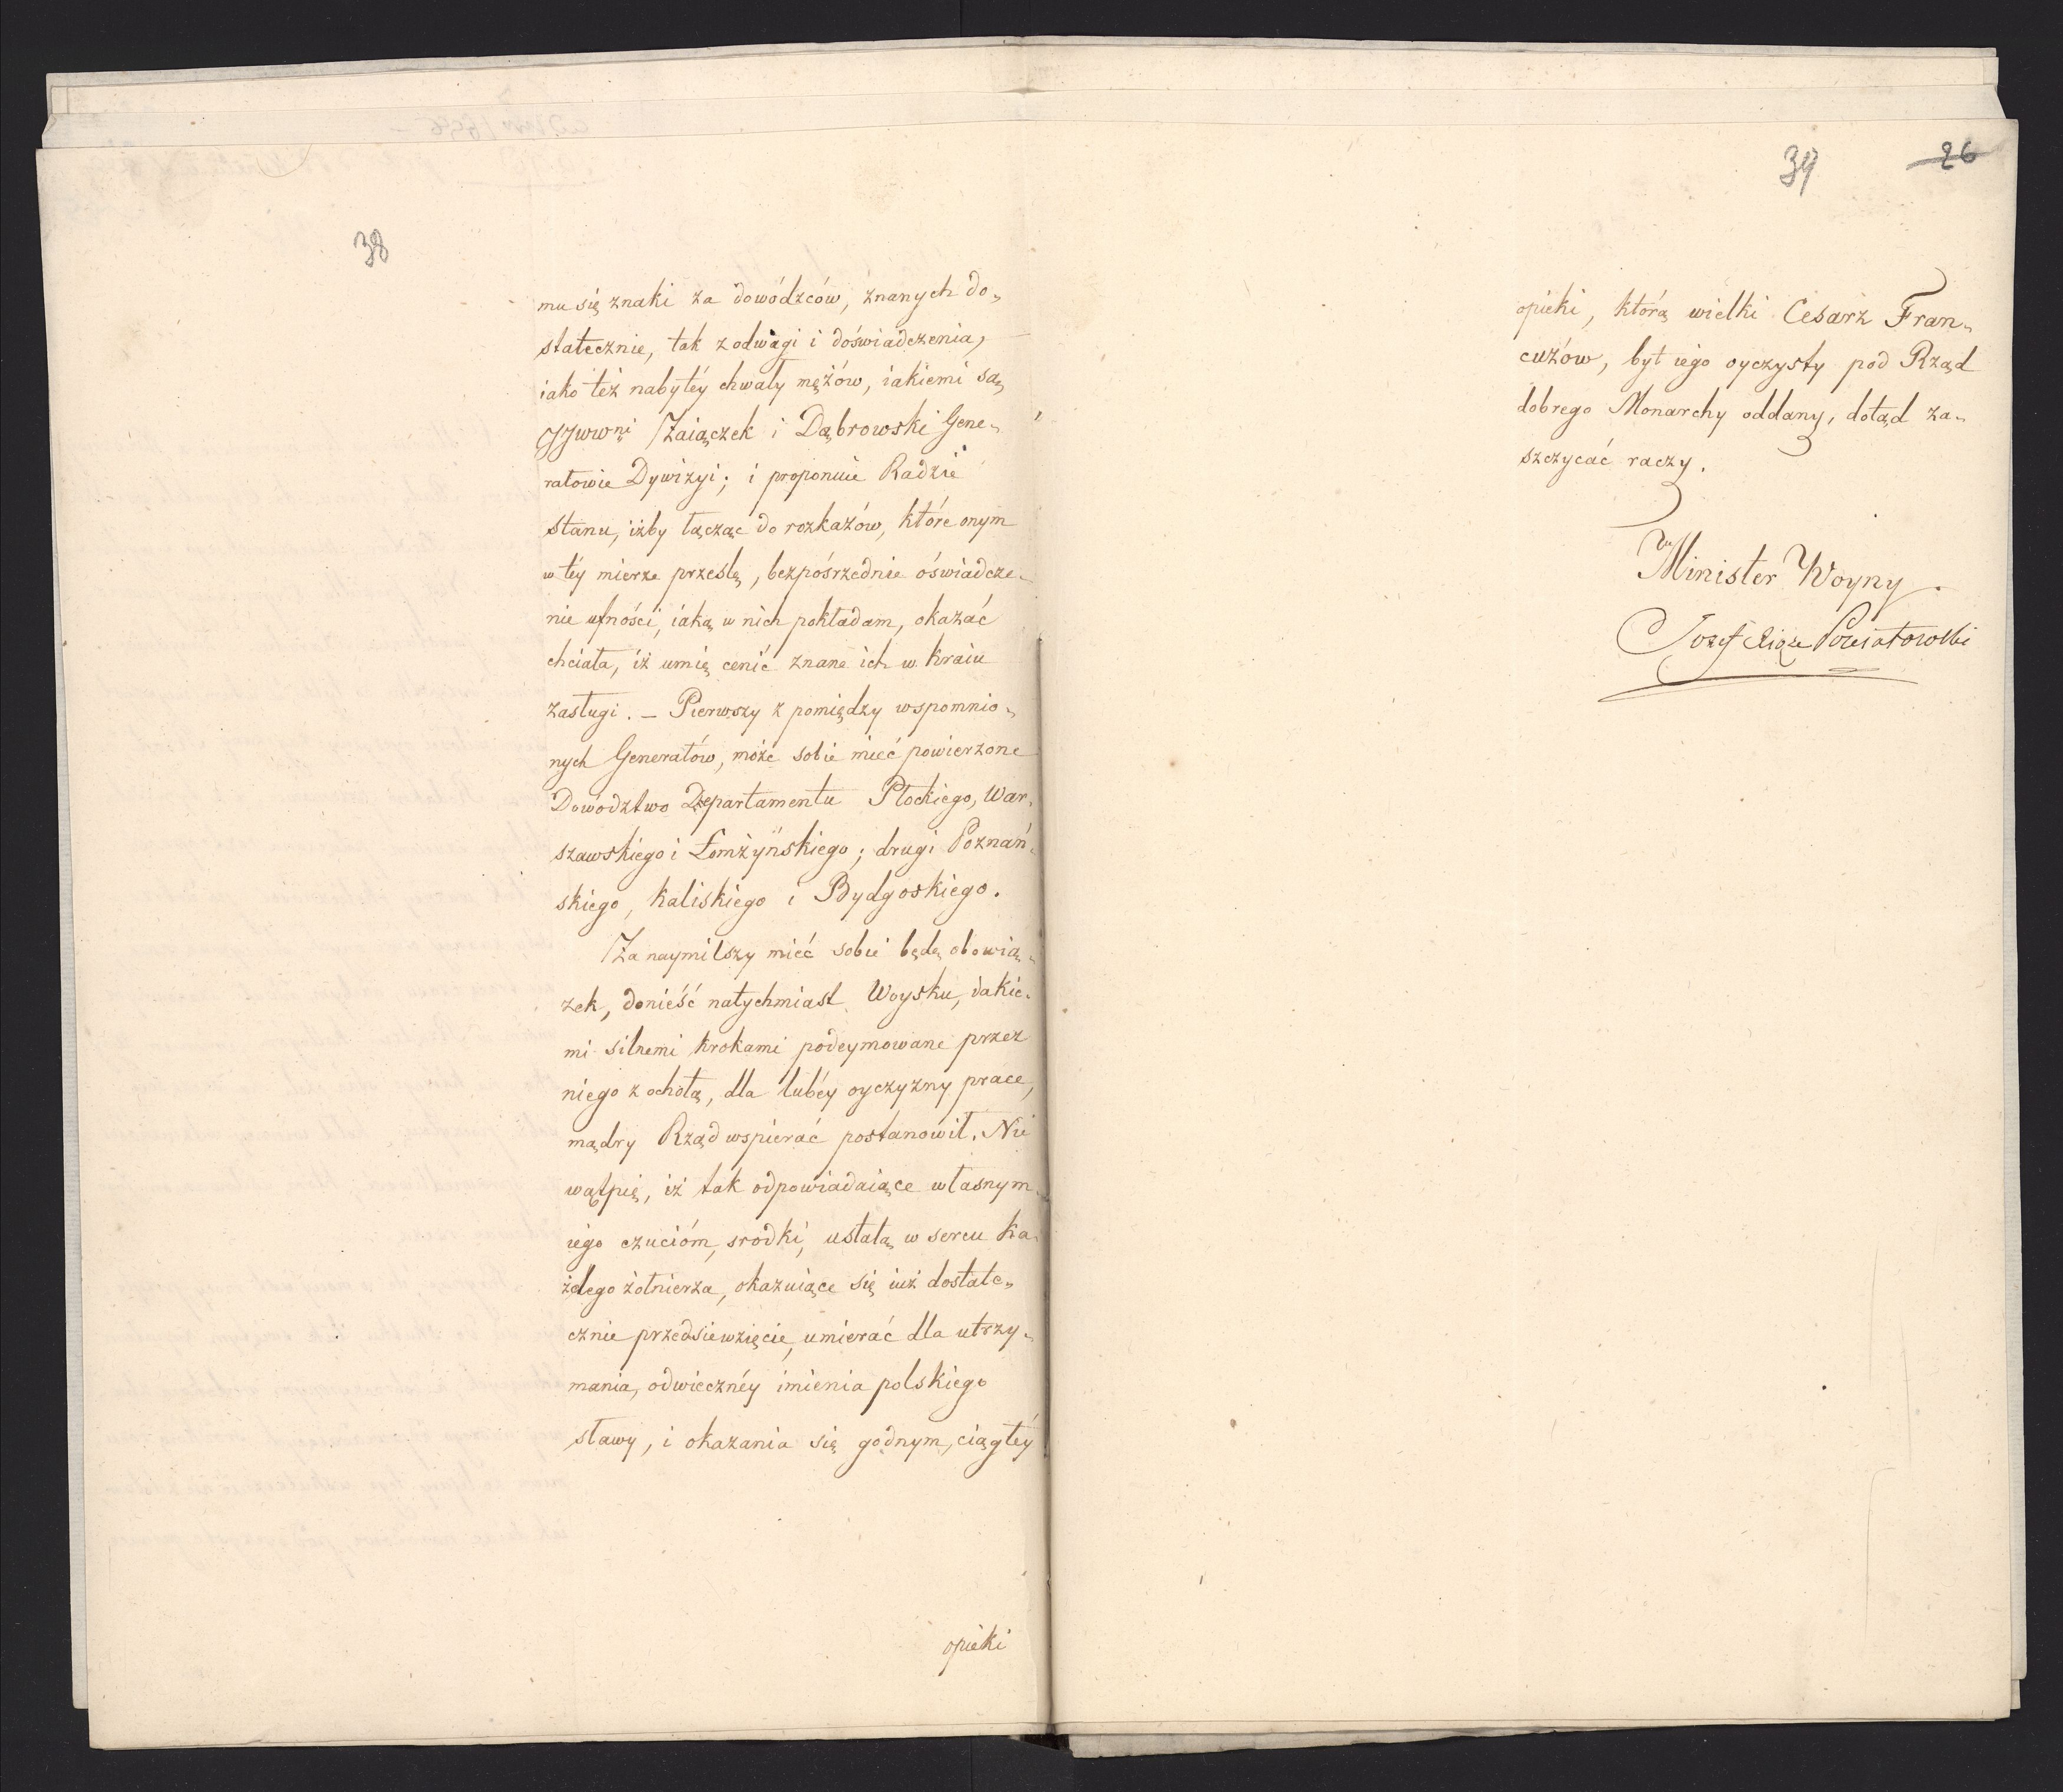 38
mu się znaki za dowódzców, znanych do„
statecznie, tak z odwagi i doświadczenia,
iako też nabytéy chwały mężów, iakiemi są,
JJWWni Zaiączek i Dąbrowski Gene„
rałowie Dywizyi; i proponuie Radzie
stanu, iżby łącząc do rozkazów, które onym
w téy mierze prześlę, bezpośrzednie oświadcze„
nie ufności, iaką w nich pokładam, okazać
chciała, iż umię cenić znane ich w kraiu
zasługi. – Pierwszy z pomiędzy wspomnio„
nych Generałów, może sobie mieć powierzone
Dowodztwo Departamentu Płockiego, War„
szawskiego i Łomżyńskiego; drugi Poznań„
skiego, Kaliskiego i Bydgoskiego.
Za naymilszy mieć sobie będę obowią„
zek, donieść natychmiast Woysku, iakie„
mi silnemi krokami podeymowane przez
niego z ochotą, dla lubéy oyczyzny prace,
mądry Rząd wspierać postanowił. Nie
wątpię, iż tak odpowiadaiące własnym
iego czucióm, srodki, ustalą w sercu ka„
żdego żołnierza, okazuiące się iuż dostate„
cznie przedsiewzięcie, umierać dla utrzy„
mania, odwiecznéy imienia polskiego
sławy, i okazania się godnym, ciągłéy
opieki
39
26
opieki, którą wielki Cesarz Fran„
cuzów, byt iego oyczysty pod Rząd
dobrego Monarchy oddany, dotąd za„
szczycać raczy.
Minister Woyny
Jozef Xiąże Poniatowski